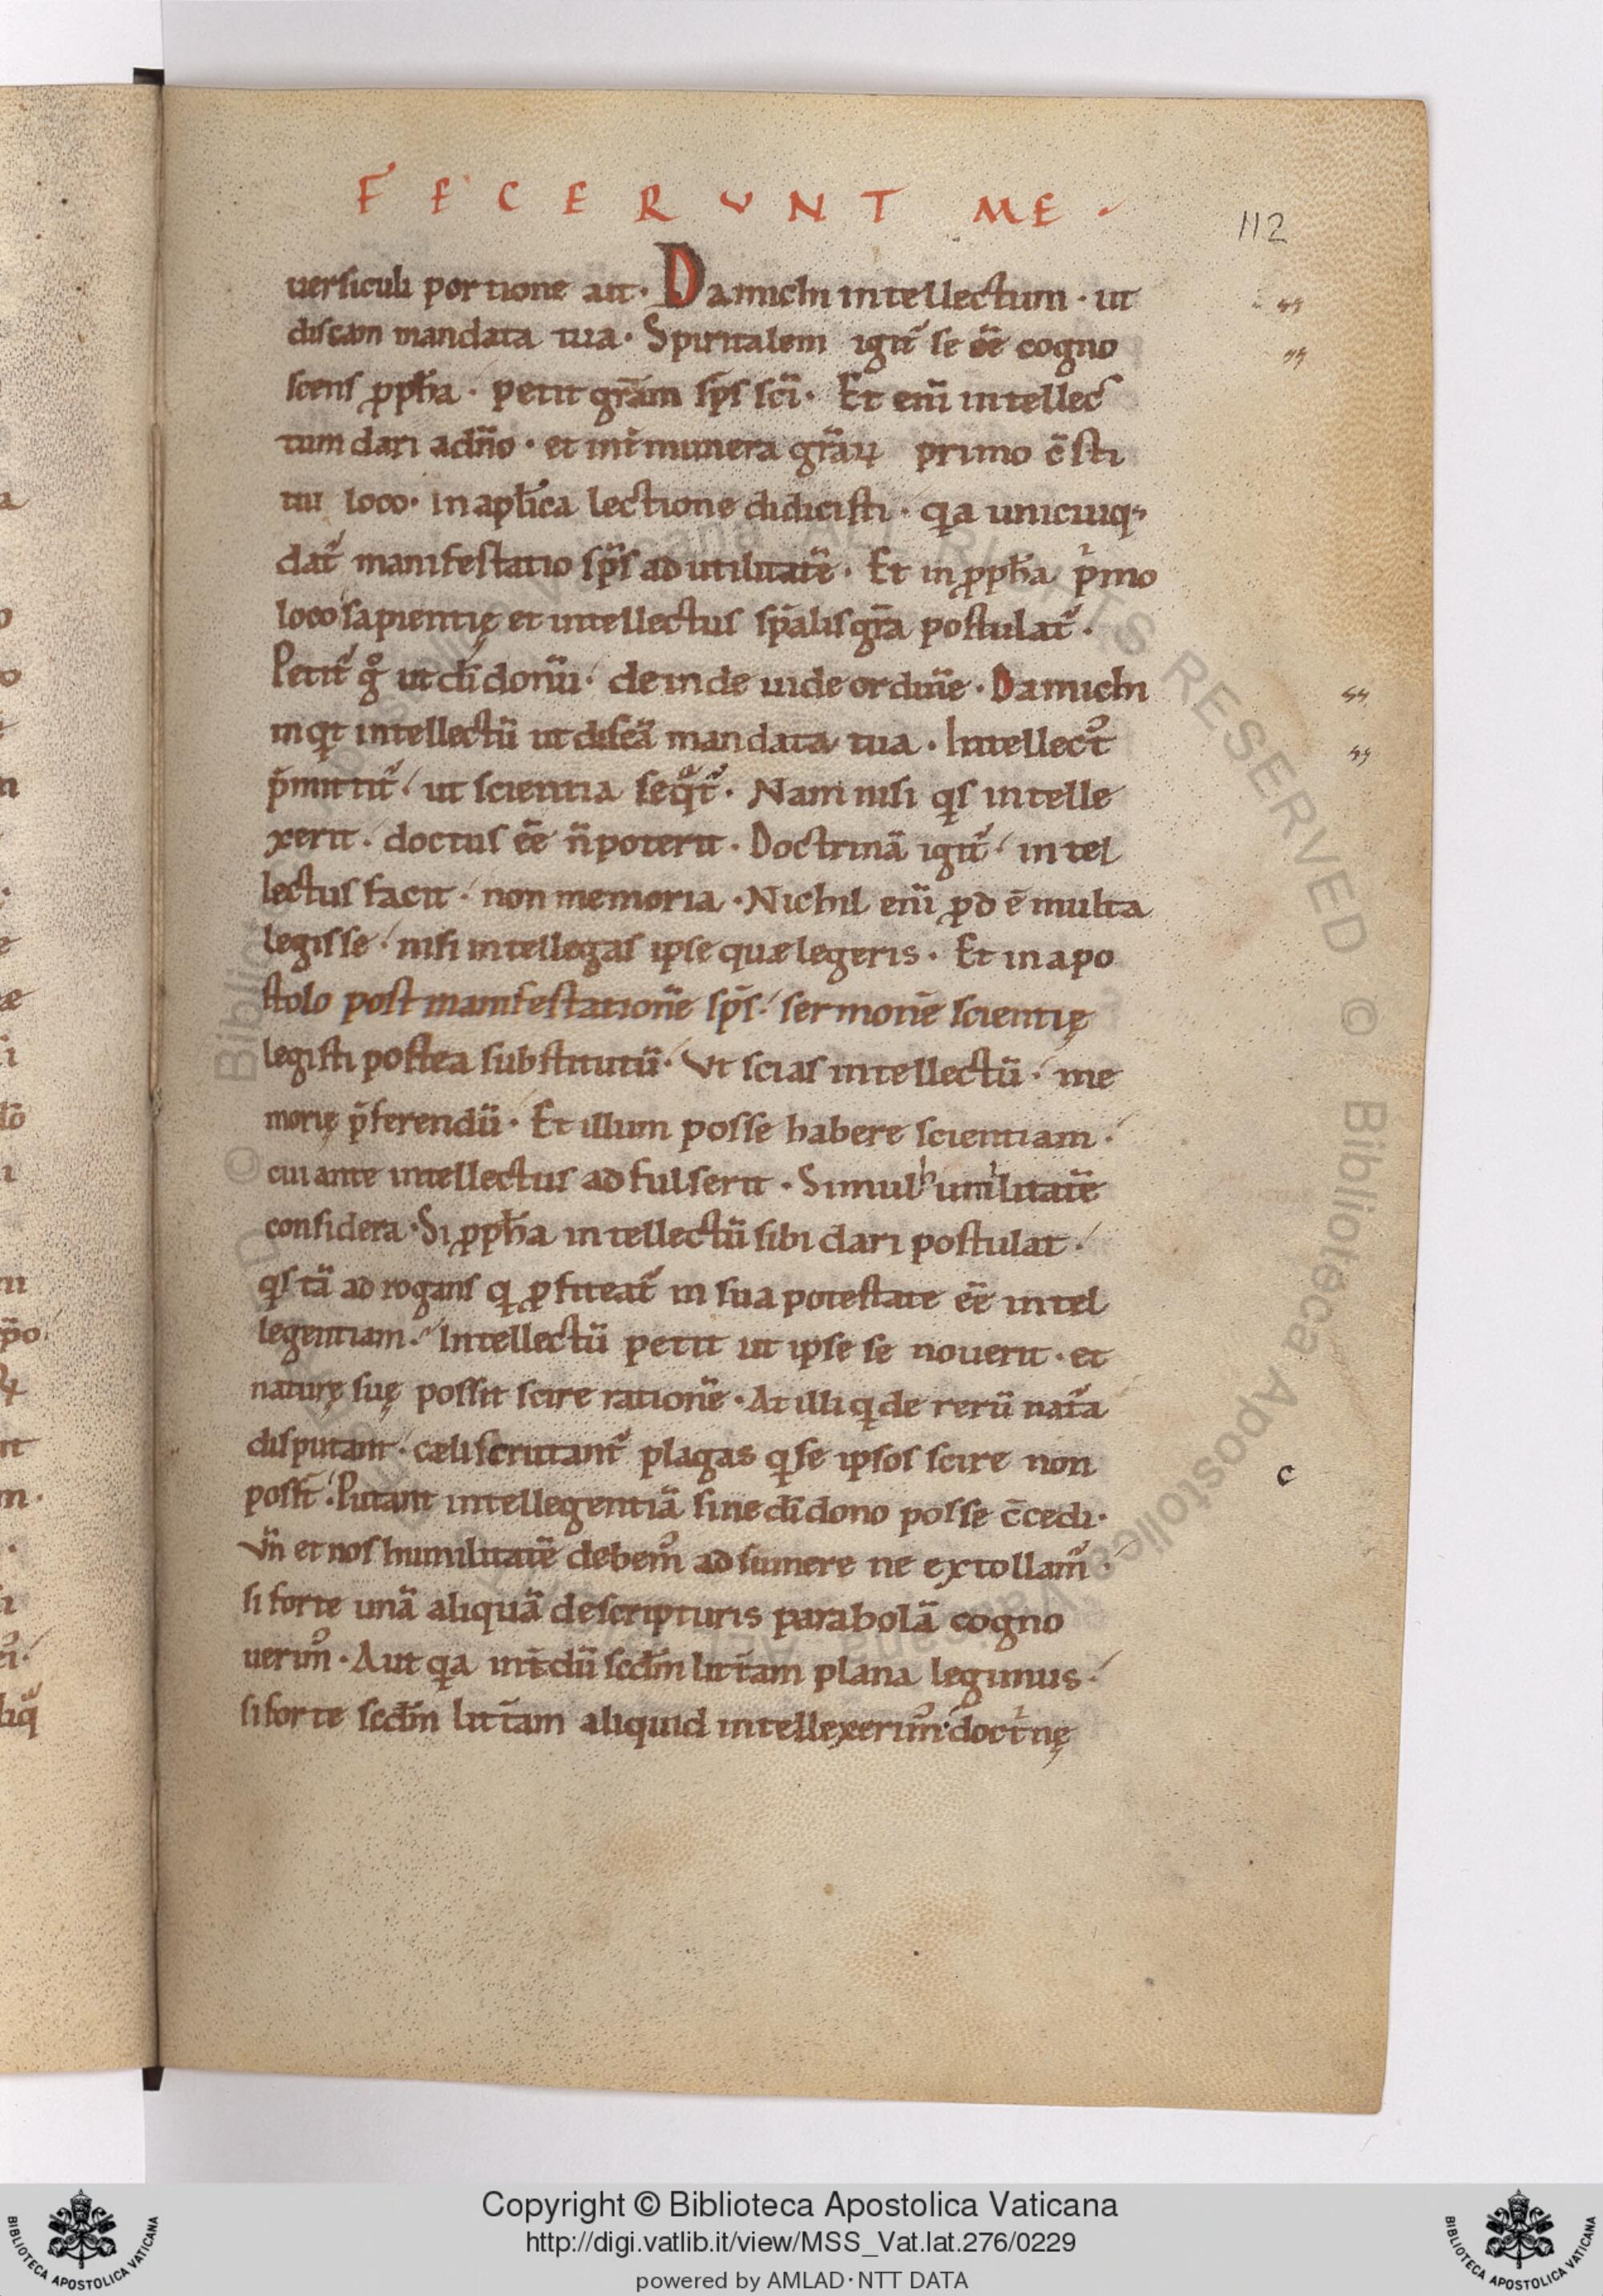 FECERVNT ME.
112
uersiculi portione ait· Da michi intellectum· ut
discam mandata tua· Spiritalem igit᷒ se ēe cogno
scens ꝓph̄a· petit gr̄am sp̄s sc̄i· Et eni̅ intellec
tum dari a dn̄o· et int̄ munera gr̄aꝝ primo c̄sti
tui loco· in apl̄ica lectione didicisti· qa unicuiq;
dat᷒ manifestatio sp̄s ad utilitatē· Et in ꝓph̄a pͥmo
loco sapientię et intellectus sp̄alis gr̄a postulat᷒·
Petit᷒ gͦ ut d̄i donū· deinde uide ordinē· Da michi
inqt intellectū ut discā mandata tua· Intellect᷒
p̄mittit᷒· ut scientia seqͣt᷒· Nam nisi qs intelle
xerit· doctus ēe n̄ poterit· Doctrinā igit᷒ intel
lectus facit· non memoria· Nichil eni̅ ꝓd ē multa
legisse· nisi intellegas ipse quæ legeris· Et in apo
stolo post manifestationē sp̄s· sermonē scientię
legisti postea substitutū· Vt scias intellectū· me
morię p̄ferendū· Et illum posse habere scientiam·
cui ante intellectus adfulserit· Simul humilitatē
considera· Si ꝓph̄a intellectū sibi dari postulat·
qs tā adrogans q ꝓfiteat᷒ in sua potestate ēe intel
legentiam· Intellectū petit ut ipse se nouerit· et
naturę suę possit scire rationē· At illi q de rerū nat᷒a
disputant· cæli scrutant᷒ plagas q se ipsos scire non
poss̄t· Putant intellegentiā sine d̄i dono posse c̄cedi·
Vn̄ et nos humilitatē debem᷒ adsumere ne extollam᷒·
si forte unā aliquā de scripturis parabolā cogno
uerim᷒· Aut qa int̄dū scd̄m litt̄am plana legimus·
si forte scd̄m litt̄am aliquid intellexerim᷒· doctͥnę
c
Copyright © Biblioteca Apostolica Vaticana
http://digi.vatlib.it/view/MSS_Vat.lat.276/0229
powered by AMLAD·NTT DATA
BIBLIOTECA APOSTOLICA VATICANA
BIBLIOTECA APOSTOLICA VATICANA